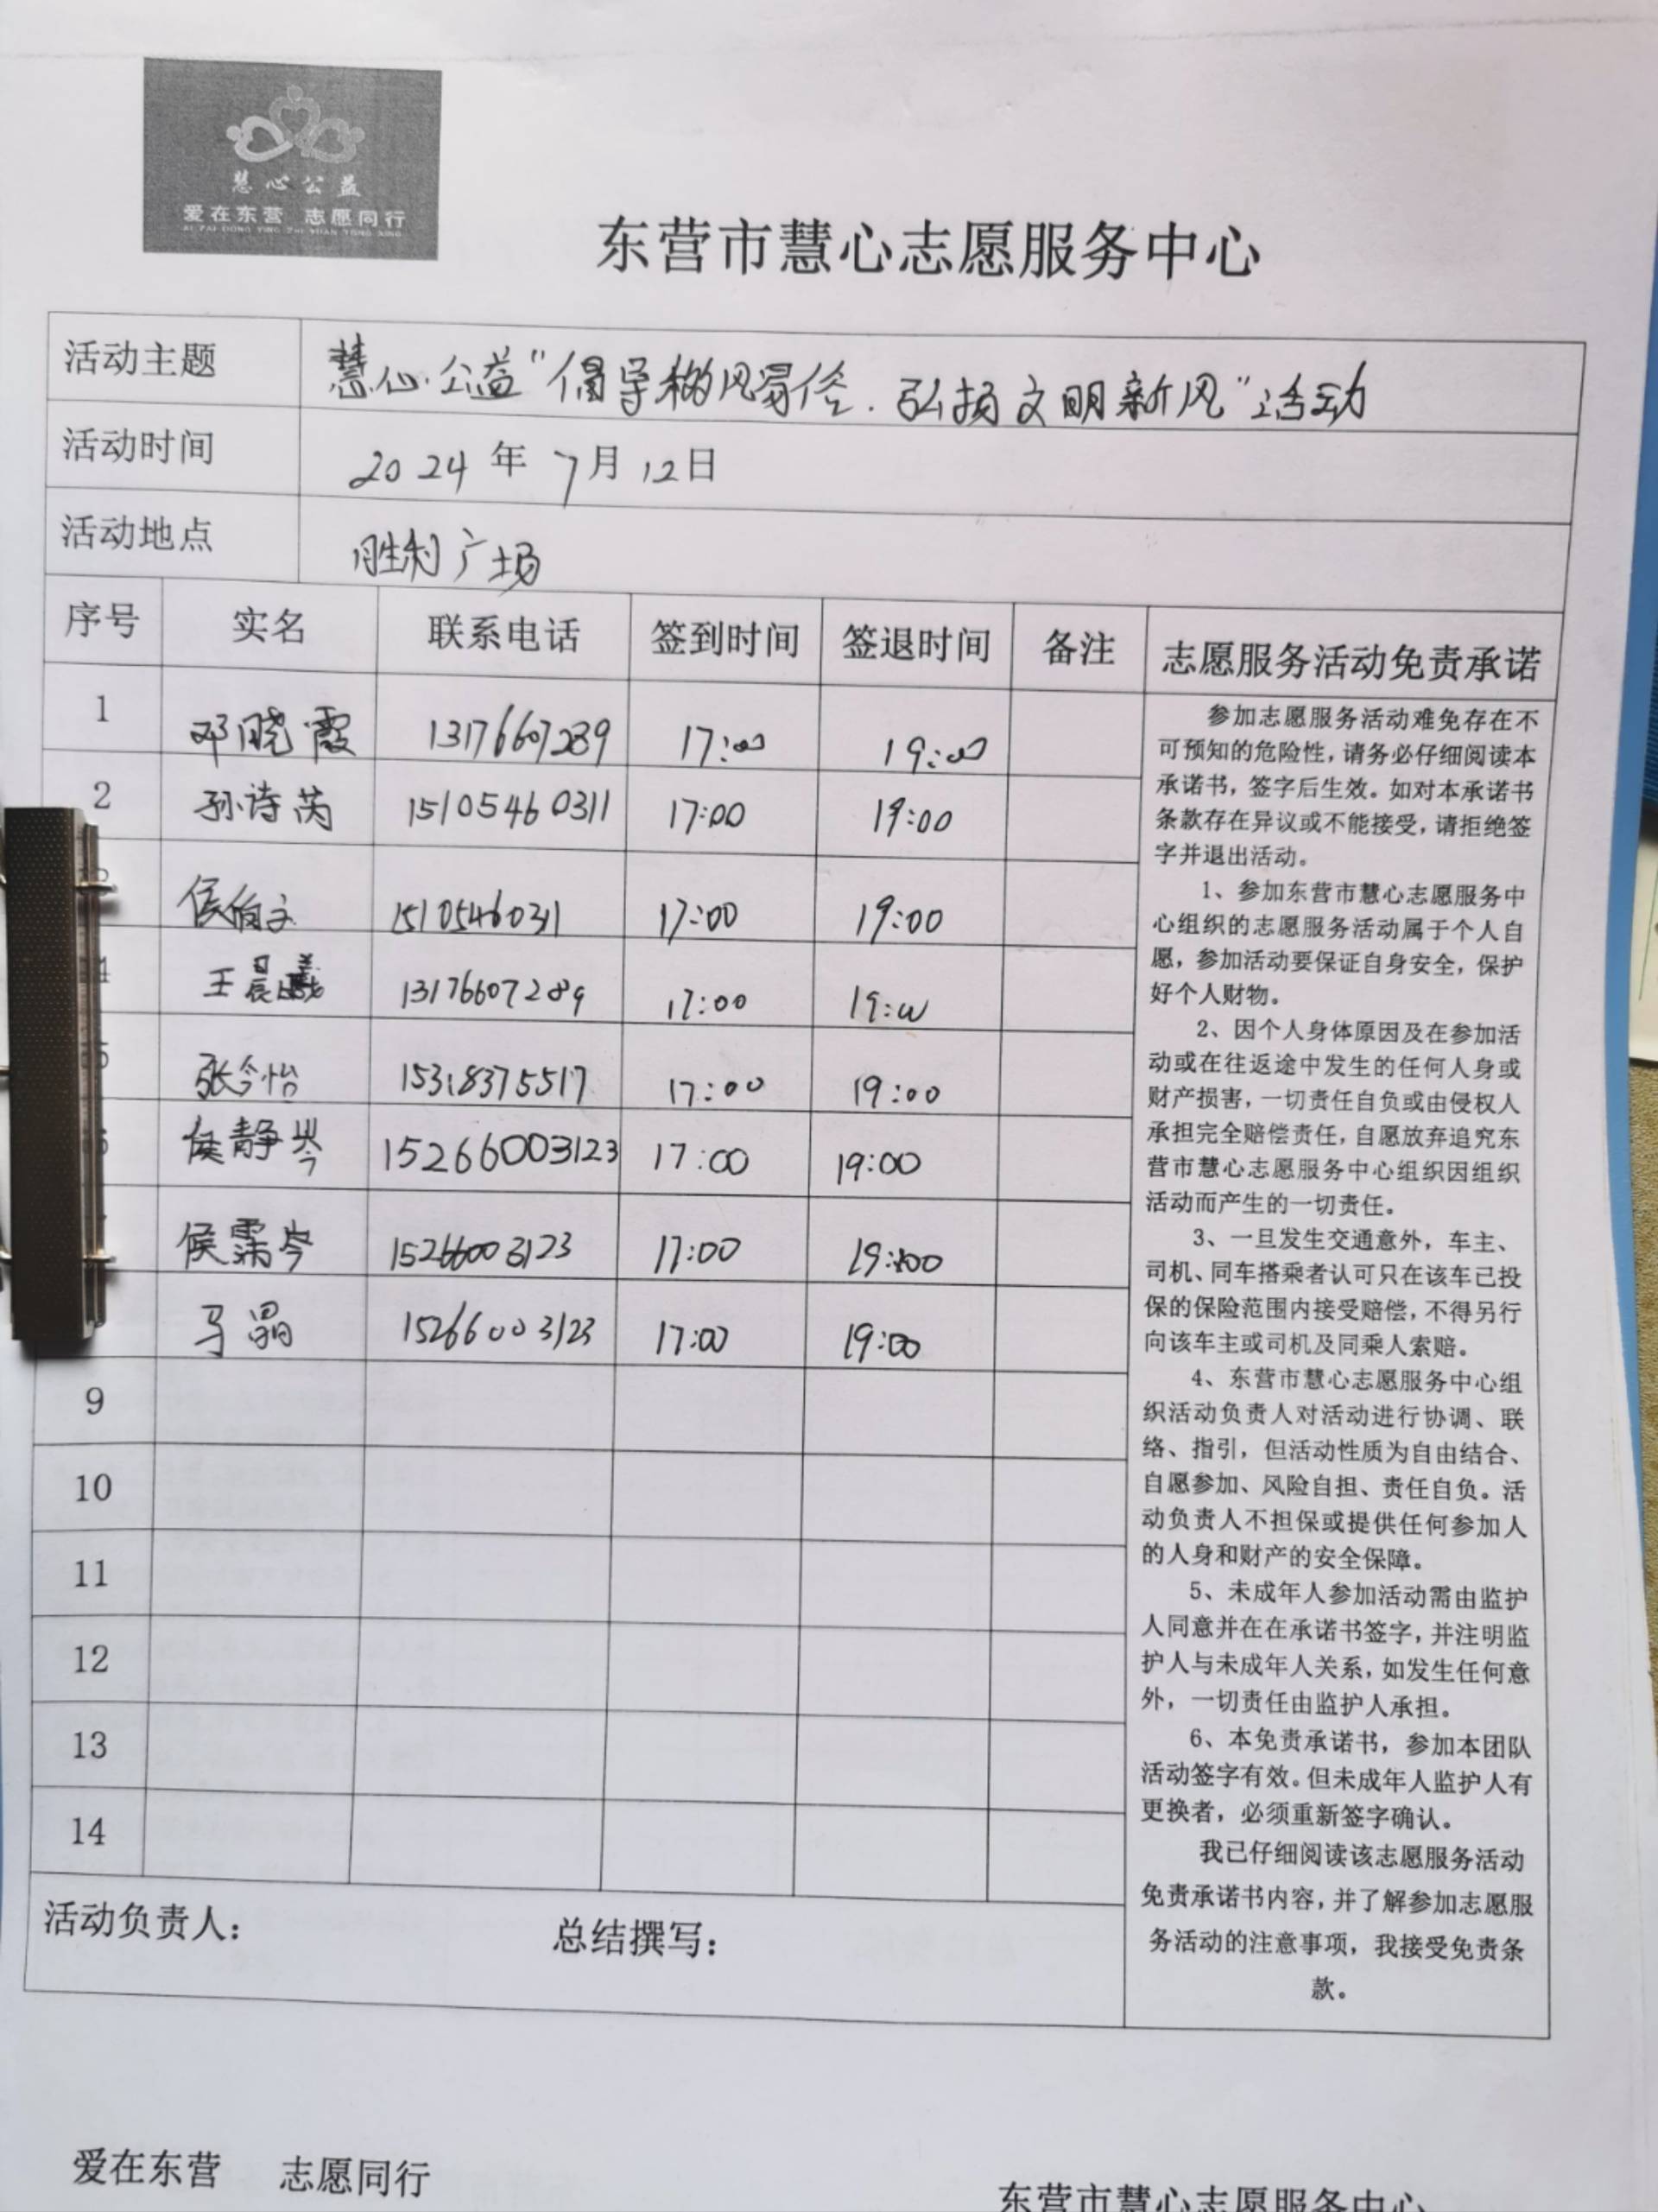 慧心公益
爱在东营 志愿同行
AI ZAI DONG YING ZHI YUAN TONG XING
东营市慧心志愿服务中心
活动主题 慧心公益"倡导移风易俗.弘扬文明新风"活动
活动时间 2024年7月12日
活动地点 胜利广场
序号 实名 联系电话 签到时间 签退时间 备注 志愿服务活动免责承诺
1 邓晓霞 13176607289 17:00 19:00
2 孙诗芮 15105460311 17:00 19:00
侯 15105460311 17:00 19:00
4 王晨曦 13176607289 17:00 19:00
5 张令怡 15318375517 17:00 19:00
6 侯静岑 15266003123 17:00 19:00
侯霈岑 15266003123 17:00 19:00
马晶 15266003123 17:00 19:00
9
10
11
12
13
14
活动负责人: 总结撰写:
参加志愿服务活动难免存在不
可预知的危险性,请务必仔细阅读本
承诺书,签字后生效。如对本承诺书
条款存在异议或不能接受,请拒绝签
字并退出活动。
1、参加东营市慧心志愿服务中
心组织的志愿服务活动属于个人自
愿,参加活动要保证自身安全,保护
好个人财物。
2、因个人身体原因及在参加活
动或在往返途中发生的任何人身或
财产损害,一切责任自负或由侵权人
承担完全赔偿责任,自愿放弃追究东
营市慧心志愿服务中心组织因组织
活动而产生的一切责任。
3、一旦发生交通意外,车主、
司机、同车搭乘者认可只在该车已投
保的保险范围内接受赔偿,不得另行
向该车主或司机及同乘人索赔。
4、东营市慧心志愿服务中心组
织活动负责人对活动进行协调、联
络、指引,但活动性质为自由结合、
自愿参加、风险自担、责任自负。活
动负责人不担保或提供任何参加人
的人身和财产的安全保障。
5、未成年人参加活动需由监护
人同意并在在承诺书签字,并注明监
护人与未成年人关系,如发生任何意
外,一切责任由监护人承担。
6、本免责承诺书,参加本团队
活动签字有效。但未成年人监护人有
更换者,必须重新签字确认。
我已仔细阅读该志愿服务活动
免责承诺书内容,并了解参加志愿服
务活动的注意事项,我接受免责条
款。
爱在东营 志愿同行
东营市慧心志愿服务中心